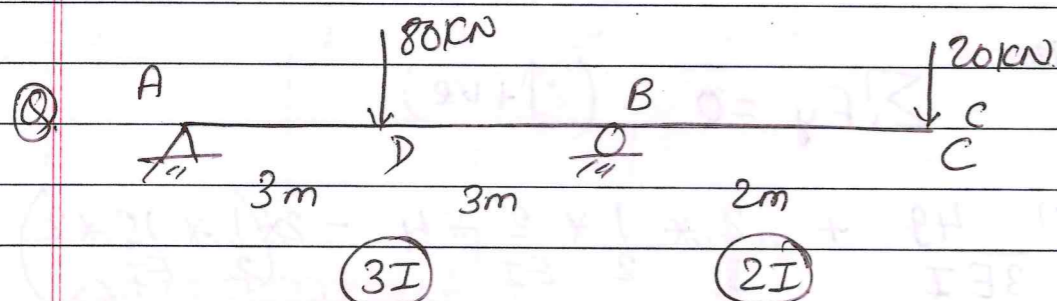 80KN
20KN.
Q. A B C
D C
3m 3m 2m
3I 2I